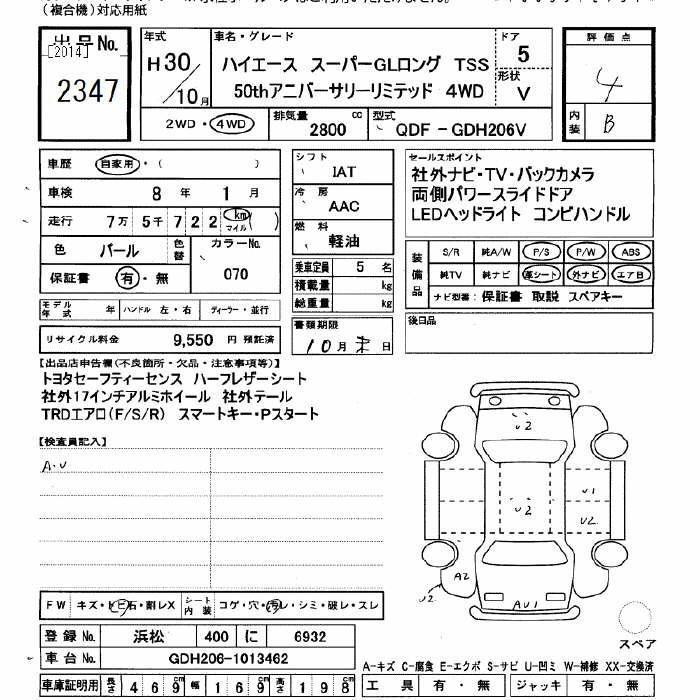 (複合機)対応用紙
出品No.
[2014]
2347
年式
H30/10月
車名・グレード
ハイエース スーパーGLロング TSS
50thアニバーサリーリミテッド 4WD
ドア
5
形状
V
評価点
4
内装
B
2WD・4WD
排気量
2800 cc
型式
QDF-GDH206V
車歴
自家用・( )
車検
8 年 1 月
走行
7万 5千 7 2 2 km マイル ( )
色
パール
色替
カラーNo.
070
保証書
有・無
モデル年式
年
ハンドル 左・右
ディーラー・並行
リサイクル料金
9,550 円 預託済
シフト
IAT
冷房
AAC
燃料
軽油
乗車定員 5 名
積載量 kg
総重量 kg
書類期限
10月末日
セールスポイント
社外ナビ・TV・バックカメラ
両側パワースライドドア
LEDヘッドライト コンビハンドル
装備品
S/R 純A/W P/S P/W ABS
純TV 純ナビ 革シート 外ナビ エアB
ナビ型番: 保証書 取説 スペアキー
後日品
【出品店申告欄(不良箇所・欠品・注意事項等)】
トヨタセーフティーセンス ハーフレザーシート
社外17インチアルミホイール 社外テール
TRDエアロ(F/S/R) スマートキー・Pスタート
【検査員記入】
A・U
U2
U2
U1
U2
A2
U2
AU1
スペア
FW キズ・トビ石・割レX
シート内装 コゲ・穴・汚レ・シミ・破レ・スレ
登録No. 浜松 400 に 6932
車台No. GDH206-1013462
A-キズ C-腐食 E-エクボ S-サビ U-凹ミ W-補修 XX-交換済
車庫証明用 長さ 4 6 9cm 幅 1 6 9cm 高さ 1 9 8cm
工具 有・無 ジャッキ 有・無